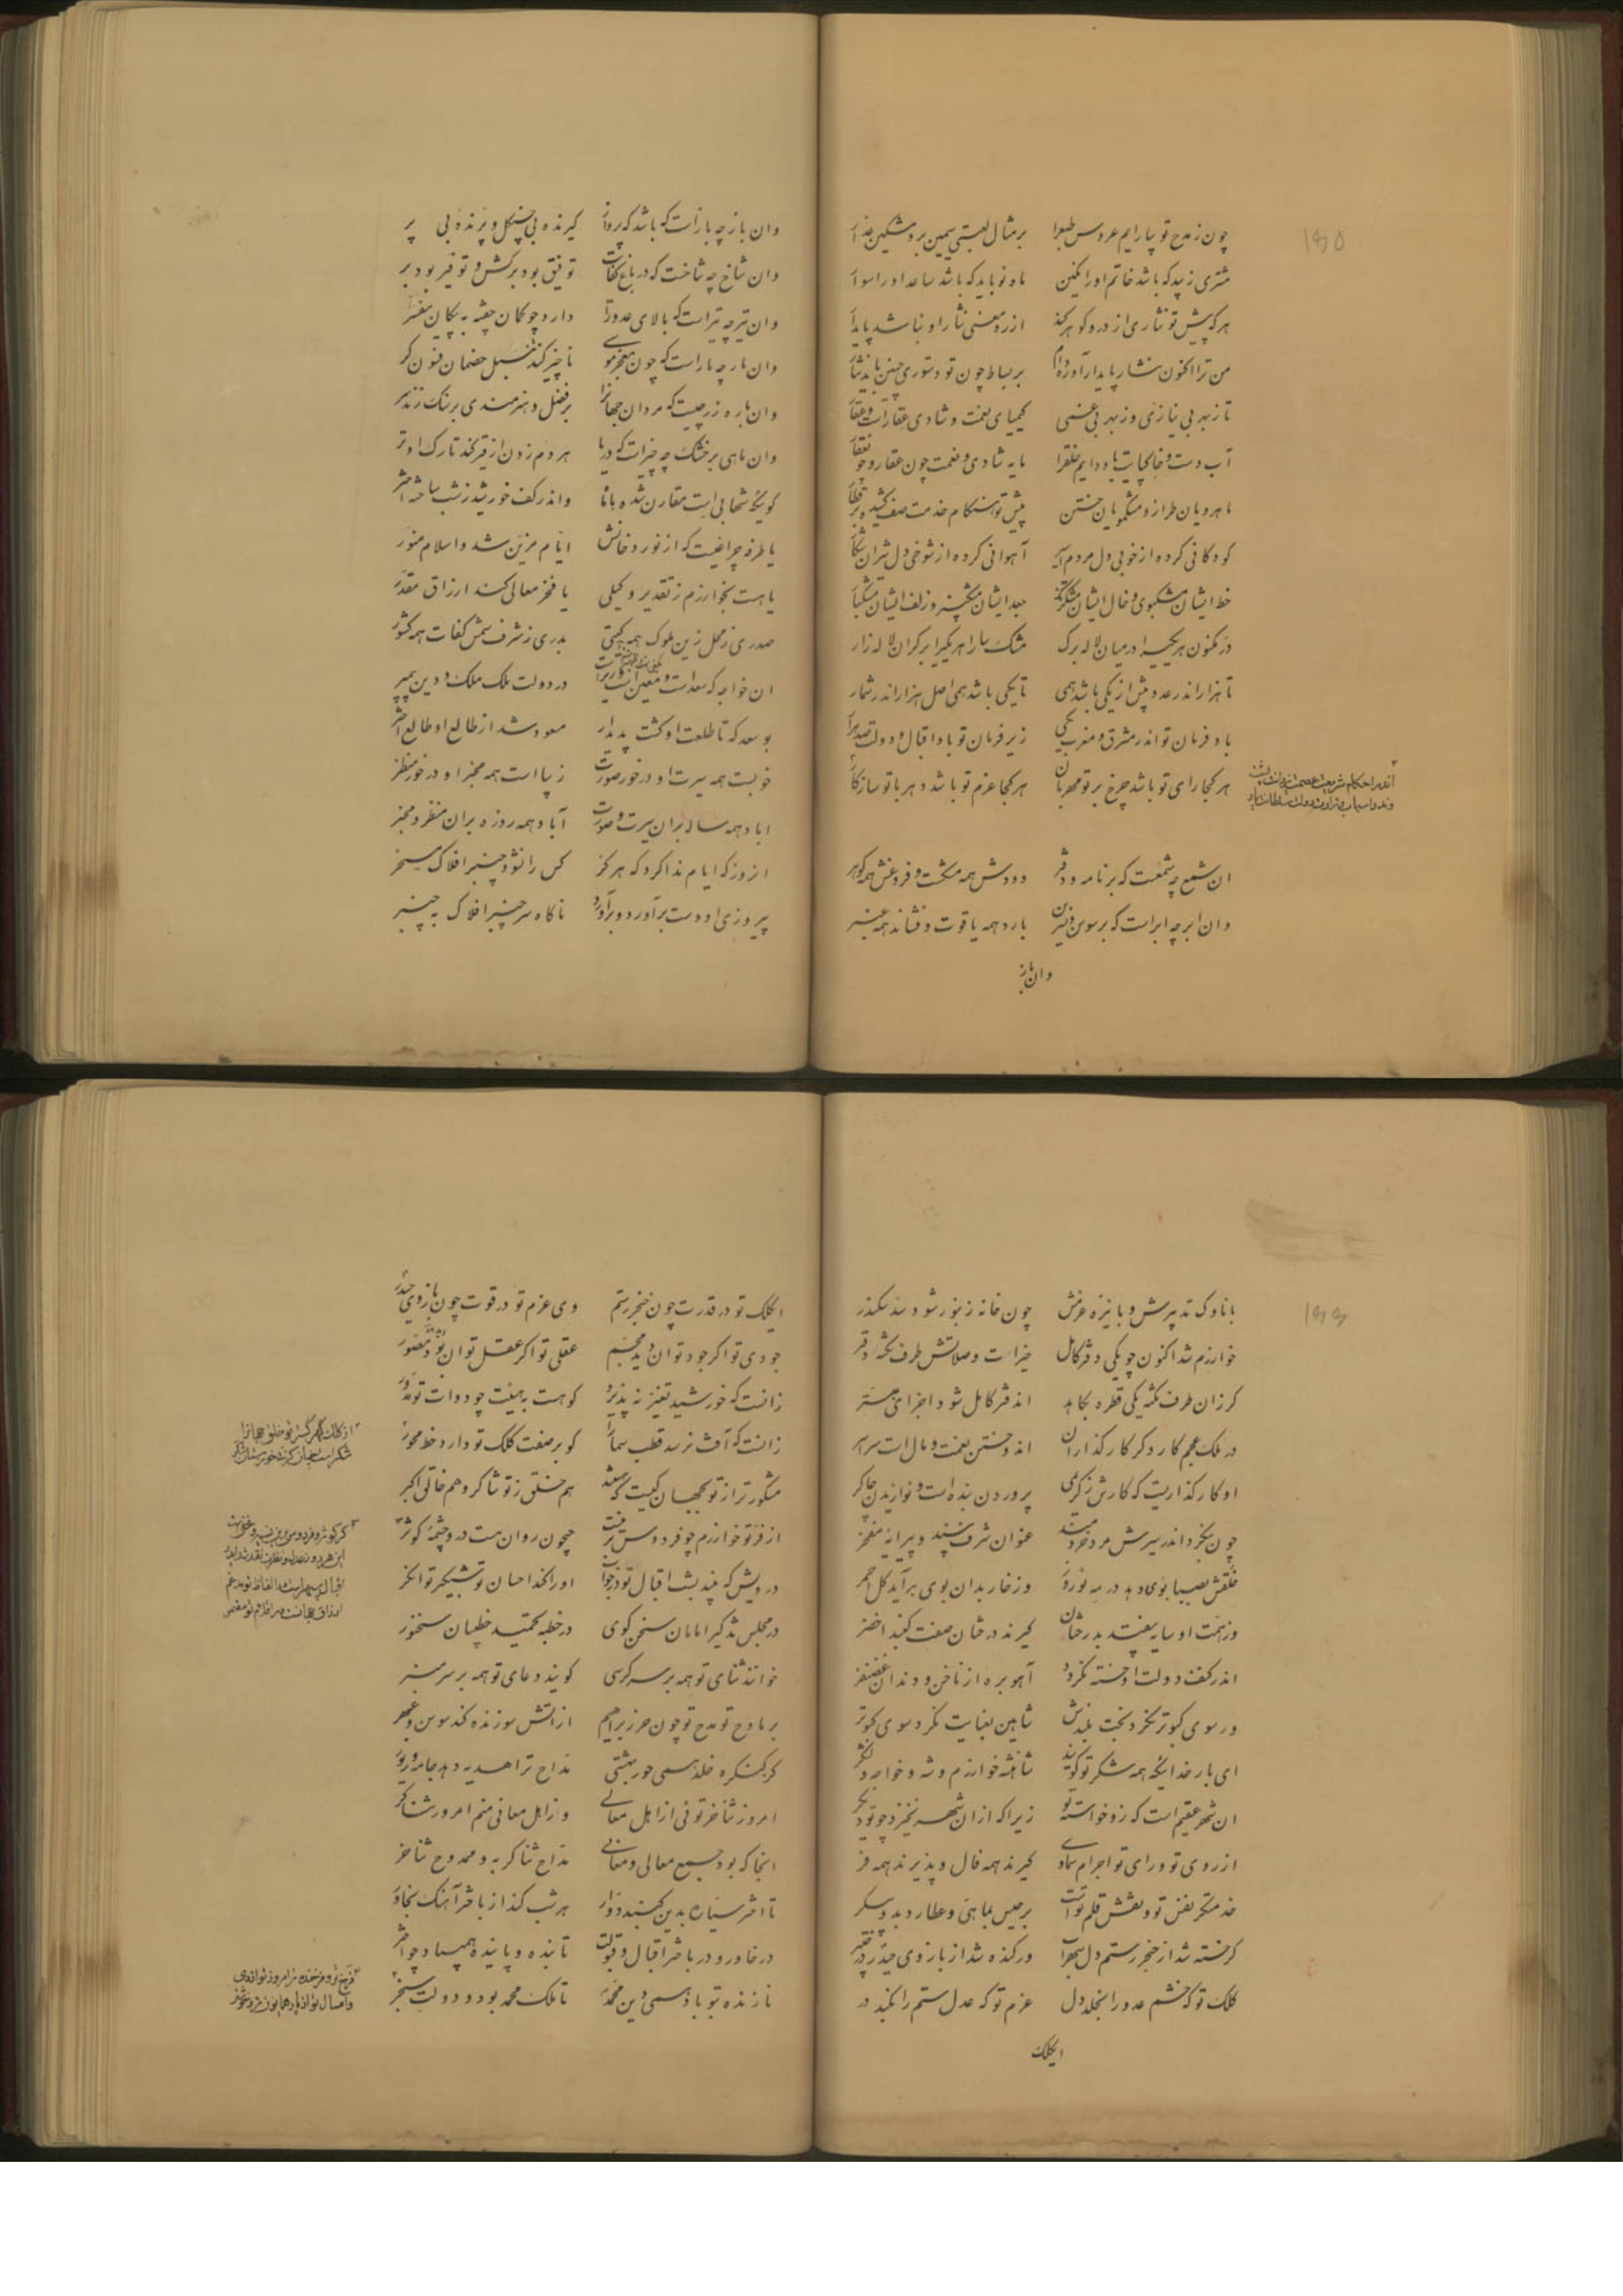 چون ز مدح تو بیارایم عروس طبع را بر مثال لعبتی سیمین بر و مشکین عذار
مشتری زیبد که باشد خاتم او را نکین ماه نو باید که باشد ساعد او را سوار
هر که پیش تو نثاری از در و کوهر کند از ره معنی نثار او نباشد پایدار
من ترا اکنون نثار پایدار آورده‌ام بر بساط چون تو دستوری چنین باید نثار
تا ز بهر بی نیازی وز بهر بی غمی کیمیای نعمت و شادی عقارست و عقار
آب دست و خاک پایت باد دایم خلق را مایه شادی و نعمت چون عقار و چون عقار
ماهرویان طراز و مشکمویان ختن پیش تو هنکام خدمت صف کشیده بر قطار
کودکانی کرده از خوبی دل مردم اسیر آهوانی کرده از شوخی دل شیران شکار
خط ایشان مشکبوی و خال ایشان مشکرنک جعد ایشان مشکبیز و زلف ایشان مشکبار
در مکنون هر یکی را در میان لاله برک مشک سارا هر یکی را بر کران لاله زار
تا هزار اندر عدد بیش از یکی باشد همی تا یکی باشد همی اصل هزار اندر شمار
باد فرمان تو اندر مشرق و مغرب یکی زیر فرمان تو باد اقبال و دولت صد هزار
هر کجا رای تو باشد چرخ بر تو مهربان هر کجا عزم تو باشد دهر با تو سازکار
اندر احکام شریعت عصمت یزدانت پشت
ان شمع چه شمعست که بر نامه و دفتر دودش همه مشکست و فروغش همه کوهر
وان ابر چه ابر است که بر سوسن و نسرین بارد همه یاقوت و فشاند همه عنبر
وان باز
وان باز چه باز است که باشد که پرواز کیرنده بی چنکل و پرنده بی پر
وان شاخ چه شاخست که در باغ کفایت توفیق بود برکش و توفیر بود بر
وان تیر چه تیر است که بالای عدو را دارد چو کمان چفته به پیکان مقشر
وان مار چه مار است که چون معجز موسی ناچیز کند تنبل خصمان فسون کر
وان باره زر چیست که مردان جهانرا بر فضل و هنرمندی بر سنک زند زر
وان ماهی بر خشک چه چیز است که دریا هر دم زدن از قیر کند تارک او تر
کوئی که شهابی است مقارن شده با ماه واندر کف خورشید ز شب ساخته اختر
یا طرفه چراغیست که از نور و دخانش ایام مزین شد و اسلام منور
یا هست بخوارزم ز تقدیر وکیلی یا فخر معالی کند ارزاق مقدر
صدری ز محل زین ملوک همه کیتی بدری ز شرف شمس کفات همه کشور
ان خواجه که سعد است و معین است در دولت ملک ملک و دین پیمبر
بو سعد که تا طلعت او کشت پدیدار مسعود شد از طالع او طالع اختر
خوبست همه سیرت او درخور صورت زیبا است همه مخبر او درخور منظر
اباد همه ساله بران سیرت و صورت آباد همه روزه بران منظر و مخبر
انروز که ایام ندا کرد که هرکز کس را نشود چنبر افلاک مسخر
پیروزی او دست برآورد و برآورد ناکاه سر چنبر افلاک به چنبر
با ناوک تدبیرش و با نیزه عزمش چون خانه زنبور شود سد سکندر
خوارزم شد اکنون چو یکی دفتر کامل خیرات و صلاتش طرف نکته دفتر
کر زان طرف نکته یکی قطره بکاهد اندفتر کامل شود اجزای مبتر
در ملک عجم کار دکر کارکذاران اندوختن نعمت و مال است سراسر
او کارکذاریست که کارش ز کریمی پروردن بنده است و نوازیدن چاکر
چون بنکرد اندر سیرش مرد خردمند عنوان شرف بیند و پیرایه مفخر
خلقش بصبا بوی دهد در مه نوروز وز خار بدان بوی برآید کل احمر
وز همت او سایه بیفتد بدرختان کیرند درختان صفت کنبد اخضر
اندر کنف دولت او خسته نکردد آهو بره از ناخن و دندان غضنفر
ور سوی کبوتر نکرد بخت بلندش شاهین بعنایت نکرد سوی کبوتر
ای بار خدائیکه همه شکر تو کویند شاهنشه خوارزم و شه و خواجه و لشکر
ان شهر عقیم است کزو خواسته تو زیرا که ازان شهر نخیزد چو تو دیکر
از روی تو و رای تو اجرام سماوی کیرند همه فال و پذیرند همه فر
خدمتکر نفس تو و نقش قلم تست برجیس بماهی و عطارد بدو پیکر
کر خسته شد از خنجر رستم دل سهراب ور کنده شد از بازوی حیدر در خیبر
کلک تو که خشم عدو را بخلد دل عزم تو که عدل ستم را بکند در
ایکلک
ایکلک تو در قدرت چون خنجر رستم وی عزم تو در قوت چون بازوی حیدر
جودی تو اکر جود توان دید مجسم عقلی تو اکر عقل توان بود مصور
زانست که خورشید تغیر نپذیرد کو هست به هیئت چو دوات تو مدور
زانست که آفت نرسد قطب سما را کو بر صفت کلک تو دارد خط محور
مشکورتر از تو بجهان کیست که باشد هم خلق ز تو شاکر و هم خالق اکبر
از فر تو خوارزم چو فردوس برینست جیحون روان هست درو چشمه کوثر
درویش که بیند بشب اقبال تو در خواب او را کند احسان تو شبکیر توانکر
در مجلس تذکیر امامان سخن کوی در خطبه تحمید خطیبان سخنور
خوانند ثنای تو همه بر سر کرسی کویند دعای تو همه بر سر منبر
بر مادح تو مدح تو چون حرز براهیم از اتش سوزنده کند سوسن و عبهر
کر کنکره خلد همی حور بهشتی مداح ترا هدیه دهد جامه و زیور
امروز ثناخر توئی از اهل معالی وز اهل معانی منم امروز ثناکر
انجا که بود جمع معالی و معانی مداح ثناکر به و ممدوح ثناخر
تا اختر سیاره بدین کنبد دوار هر شب کند از باختر آهنک بخاور
در خاور و در باختر اقبال و قبولت تابنده و پاینده همی باد چو اختر
نازنده بتو باد همی دین محمد تا ملک محمد بود و دولت سنجر